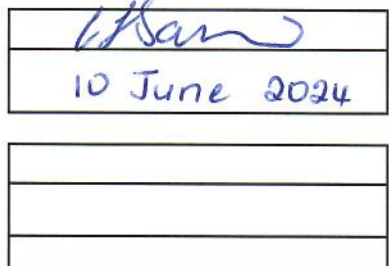 10 June 2024